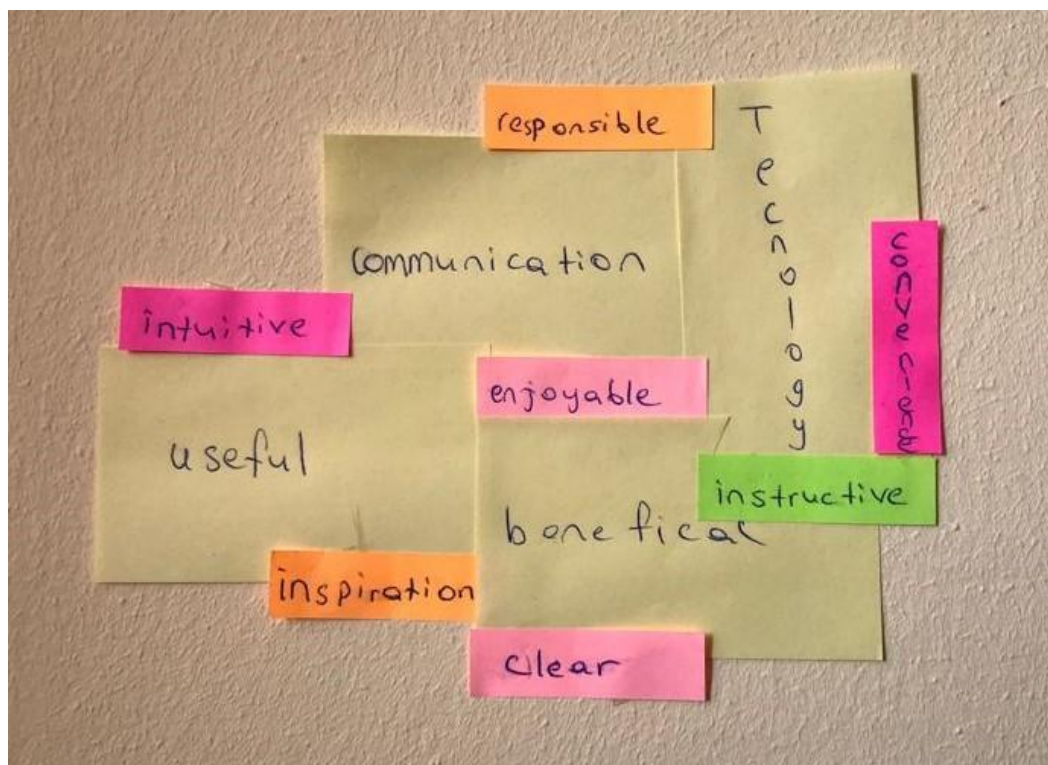 responsible
Tecnology
communication
convenient
intuitive
enjoyable
useful
instructive
bonefical
inspiration
clear